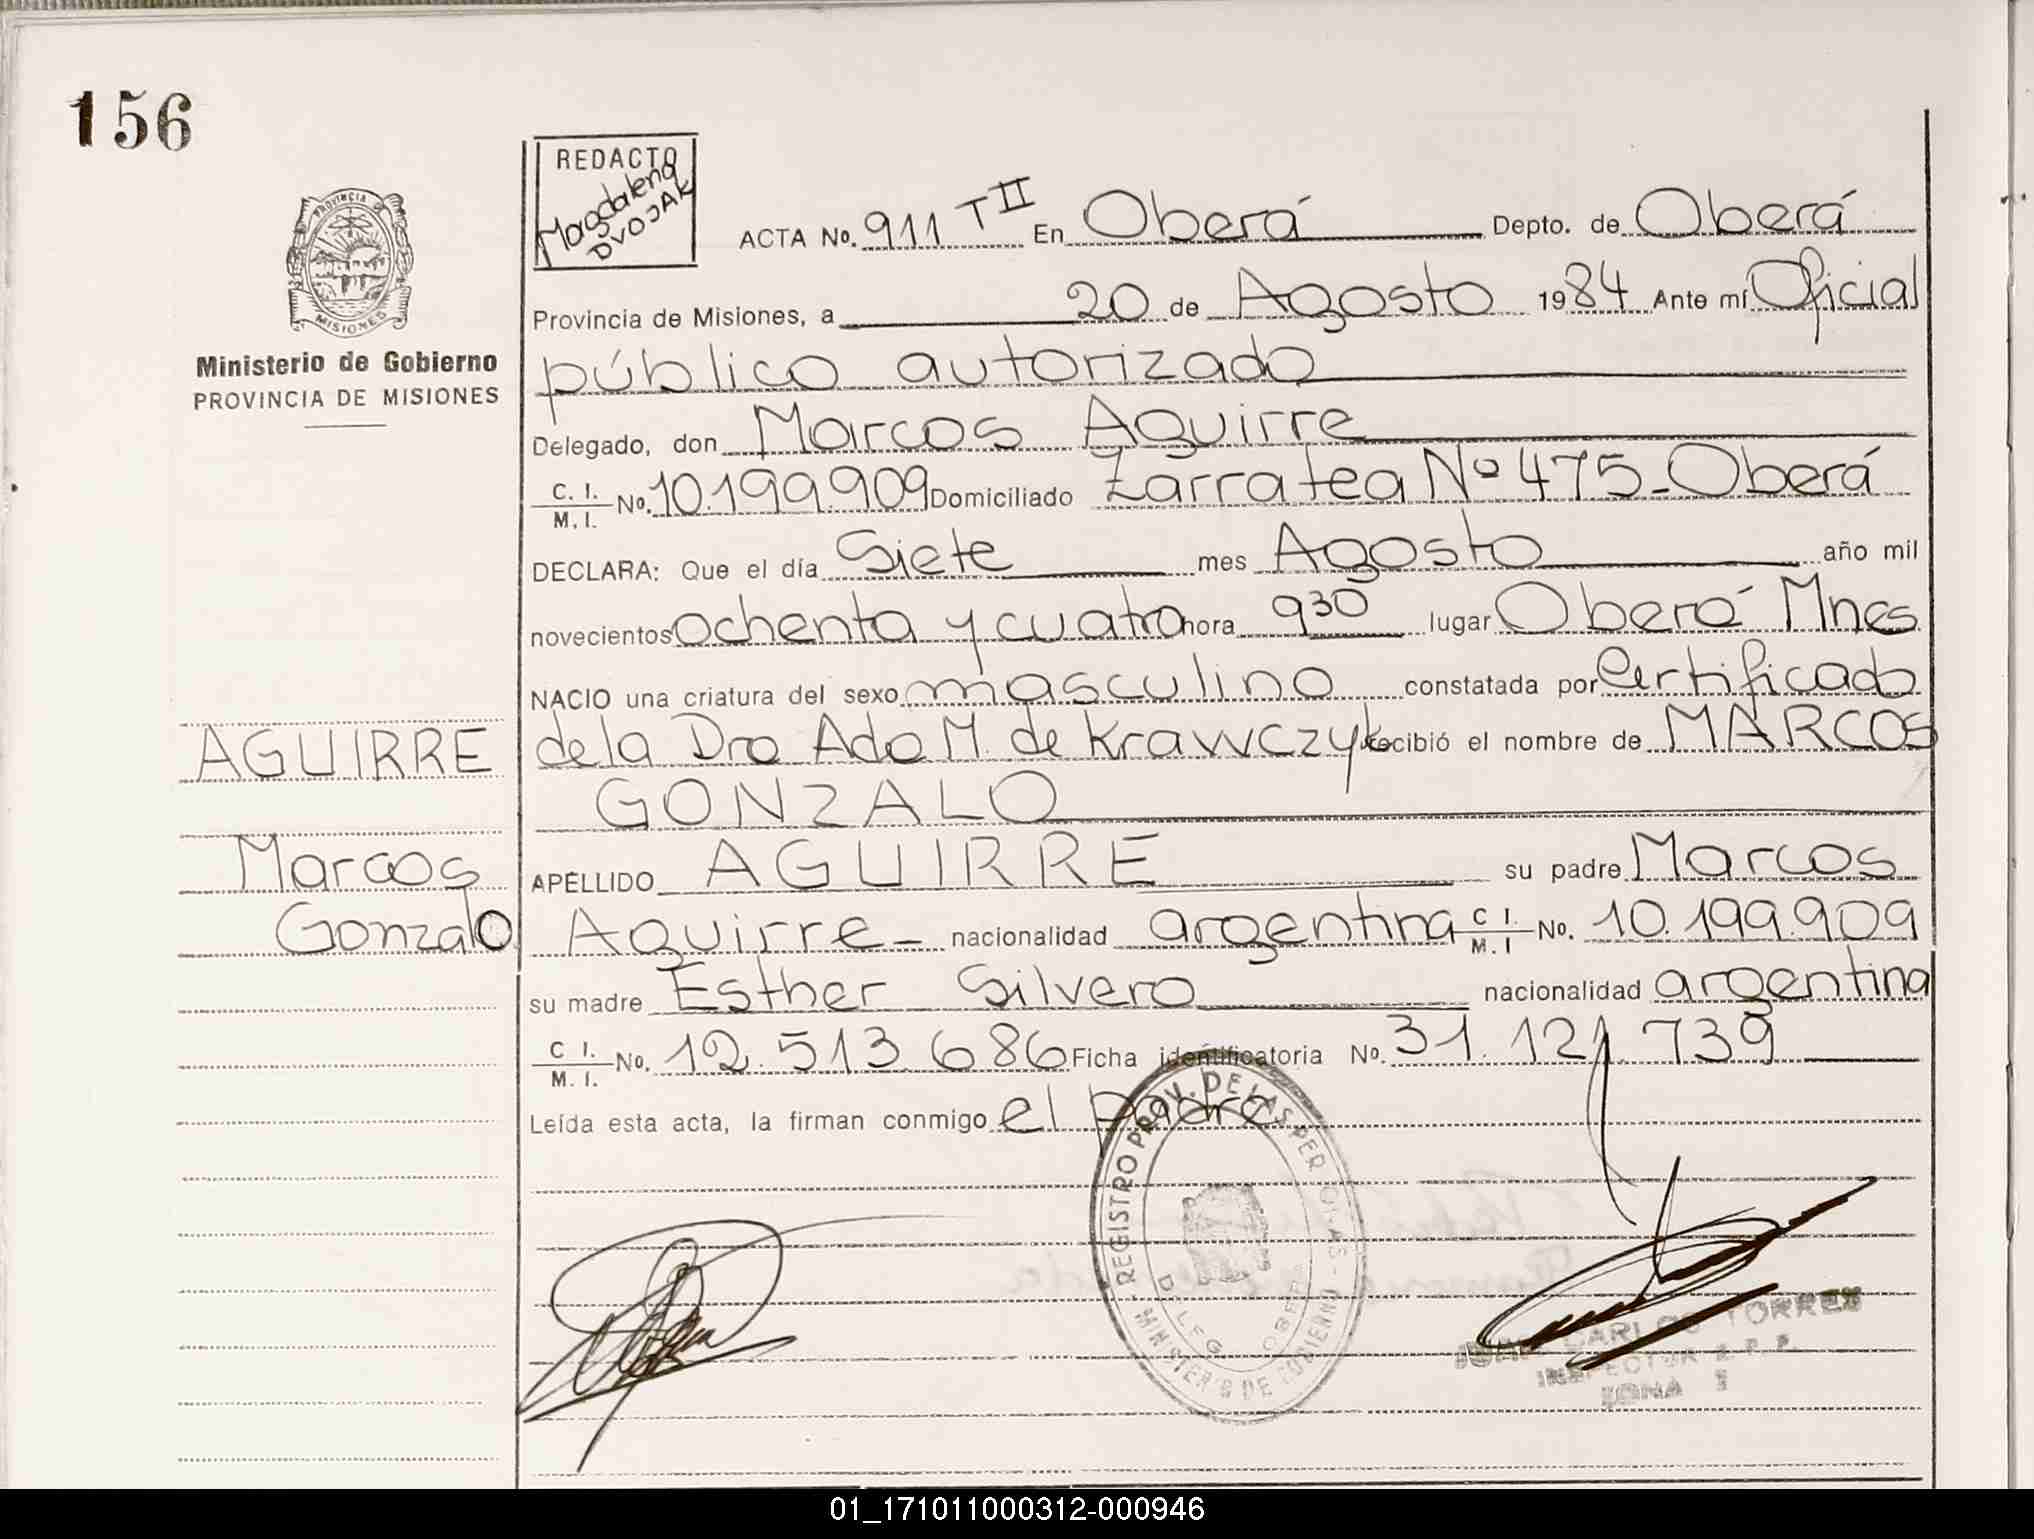 156
PROVINCIA DE
MISIONES
Ministerio de Gobierno
PROVINCIA DE MISIONES
REDACTO
Magdalena
DVOJAK
ACTA No. 911 T II En Oberá Depto. de Oberá
Provincia de Misiones, a 20 de Agosto 1984 Ante mí Oficial
público autorizado
Delegado, don Marcos Aguirre
C. I. / M. I. No. 10.199.909 Domiciliado Zarratea Nº 475 - Oberá
DECLARA: Que el día Siete mes Agosto año mil
novecientos ochenta y cuatro hora 9 30 lugar Oberá Mnes
NACIO una criatura del sexo masculino constatada por Certificado
de la Dra Ada M. de Krawczyk recibió el nombre de MARCOS
GONZALO
APELLIDO AGUIRRE su padre Marcos
Aguirre - nacionalidad argentina C I. / M. I No. 10.199.909
su madre Esther Silvero nacionalidad argentina
C I. / M. I. No. 12.513.686 Ficha identificatoria No. 31.121.739
Leída esta acta, la firman conmigo el padre
AGUIRRE
Marcos
Gonzalo
REGISTRO PROV. DE LAS PER
MINISTERIO DE GOBIERNO
DELEG OBERA
CARLOS TORRES
INSPECTOR R. P. P.
ZONA I
01_171011000312-000946